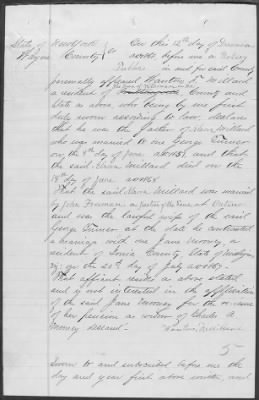 State of New York
Wayne County ss On this 12th day of
before me a Notary
Public in and for said County
personally appeared Millard
a resident of County and
State as above who being by me first
duly sworn according to law, declares
that he was the father of Millard
who was married to one George Turner
on the 8th day of June 1851 and that
the said Millard died on the
18th day of June
That the said Millard was married
by John Freeman a Justice of the Peace at
and was the lawful wife of the said
George Turner, at the date he contracted
a marriage with one Jane Mooney, a
resident of Ionia County State of
on the 22d day of July
That affiant resides as above stated
and is not interested in the application
of the said Jane Mooney for the
of her pension as widow of Charles
Mooney deceased.
Millard
5
Sworn to and subscribed before me the
day and year first above written and